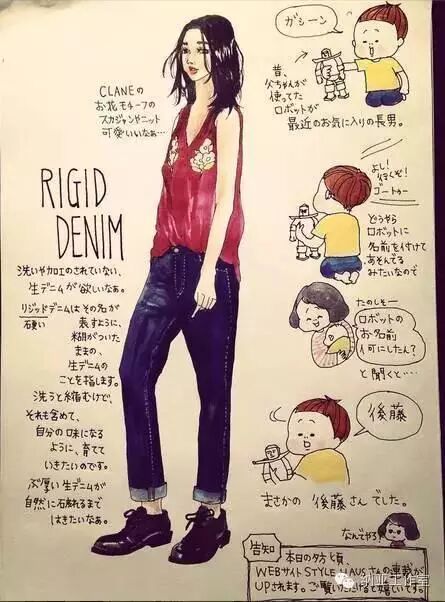 CLANEの
お花モチーフの
スカジャンやニット
可愛いいなぁ…
RIGID
DENIM
洗いや加工のされていない、
生デニムが欲しいなぁ。
リジッドデニムはその名が
硬い
表すように、
糊がついた
ままの、
生デニムの
ことを指します。
洗うと縮むけど、
それも含めて、
自分の味になる
ように、育てて
いきたいのです。
ぶ厚い生デニムが
自然に破れるまで
はきたいなぁ。
ガシーン
昔、
父ちゃんが
使ってた
ロボットが
最近のお気に入りの長男。
よし!
行くぞ!
ゴートゥー
どうやら
ロボットに
名前を付けて
あそんでる
みたいなので
たのしそー
ロボットの
お名前
何にしたん?
と聞くと…‥
後藤
まさかの 後藤さんでした。
なんでやろ
告知
本日の夕方頃、
WEBサイトSTYLE HAUSさんの連載が
UPされます。ご覧いただけると嬉しいです。
纳亚工作室